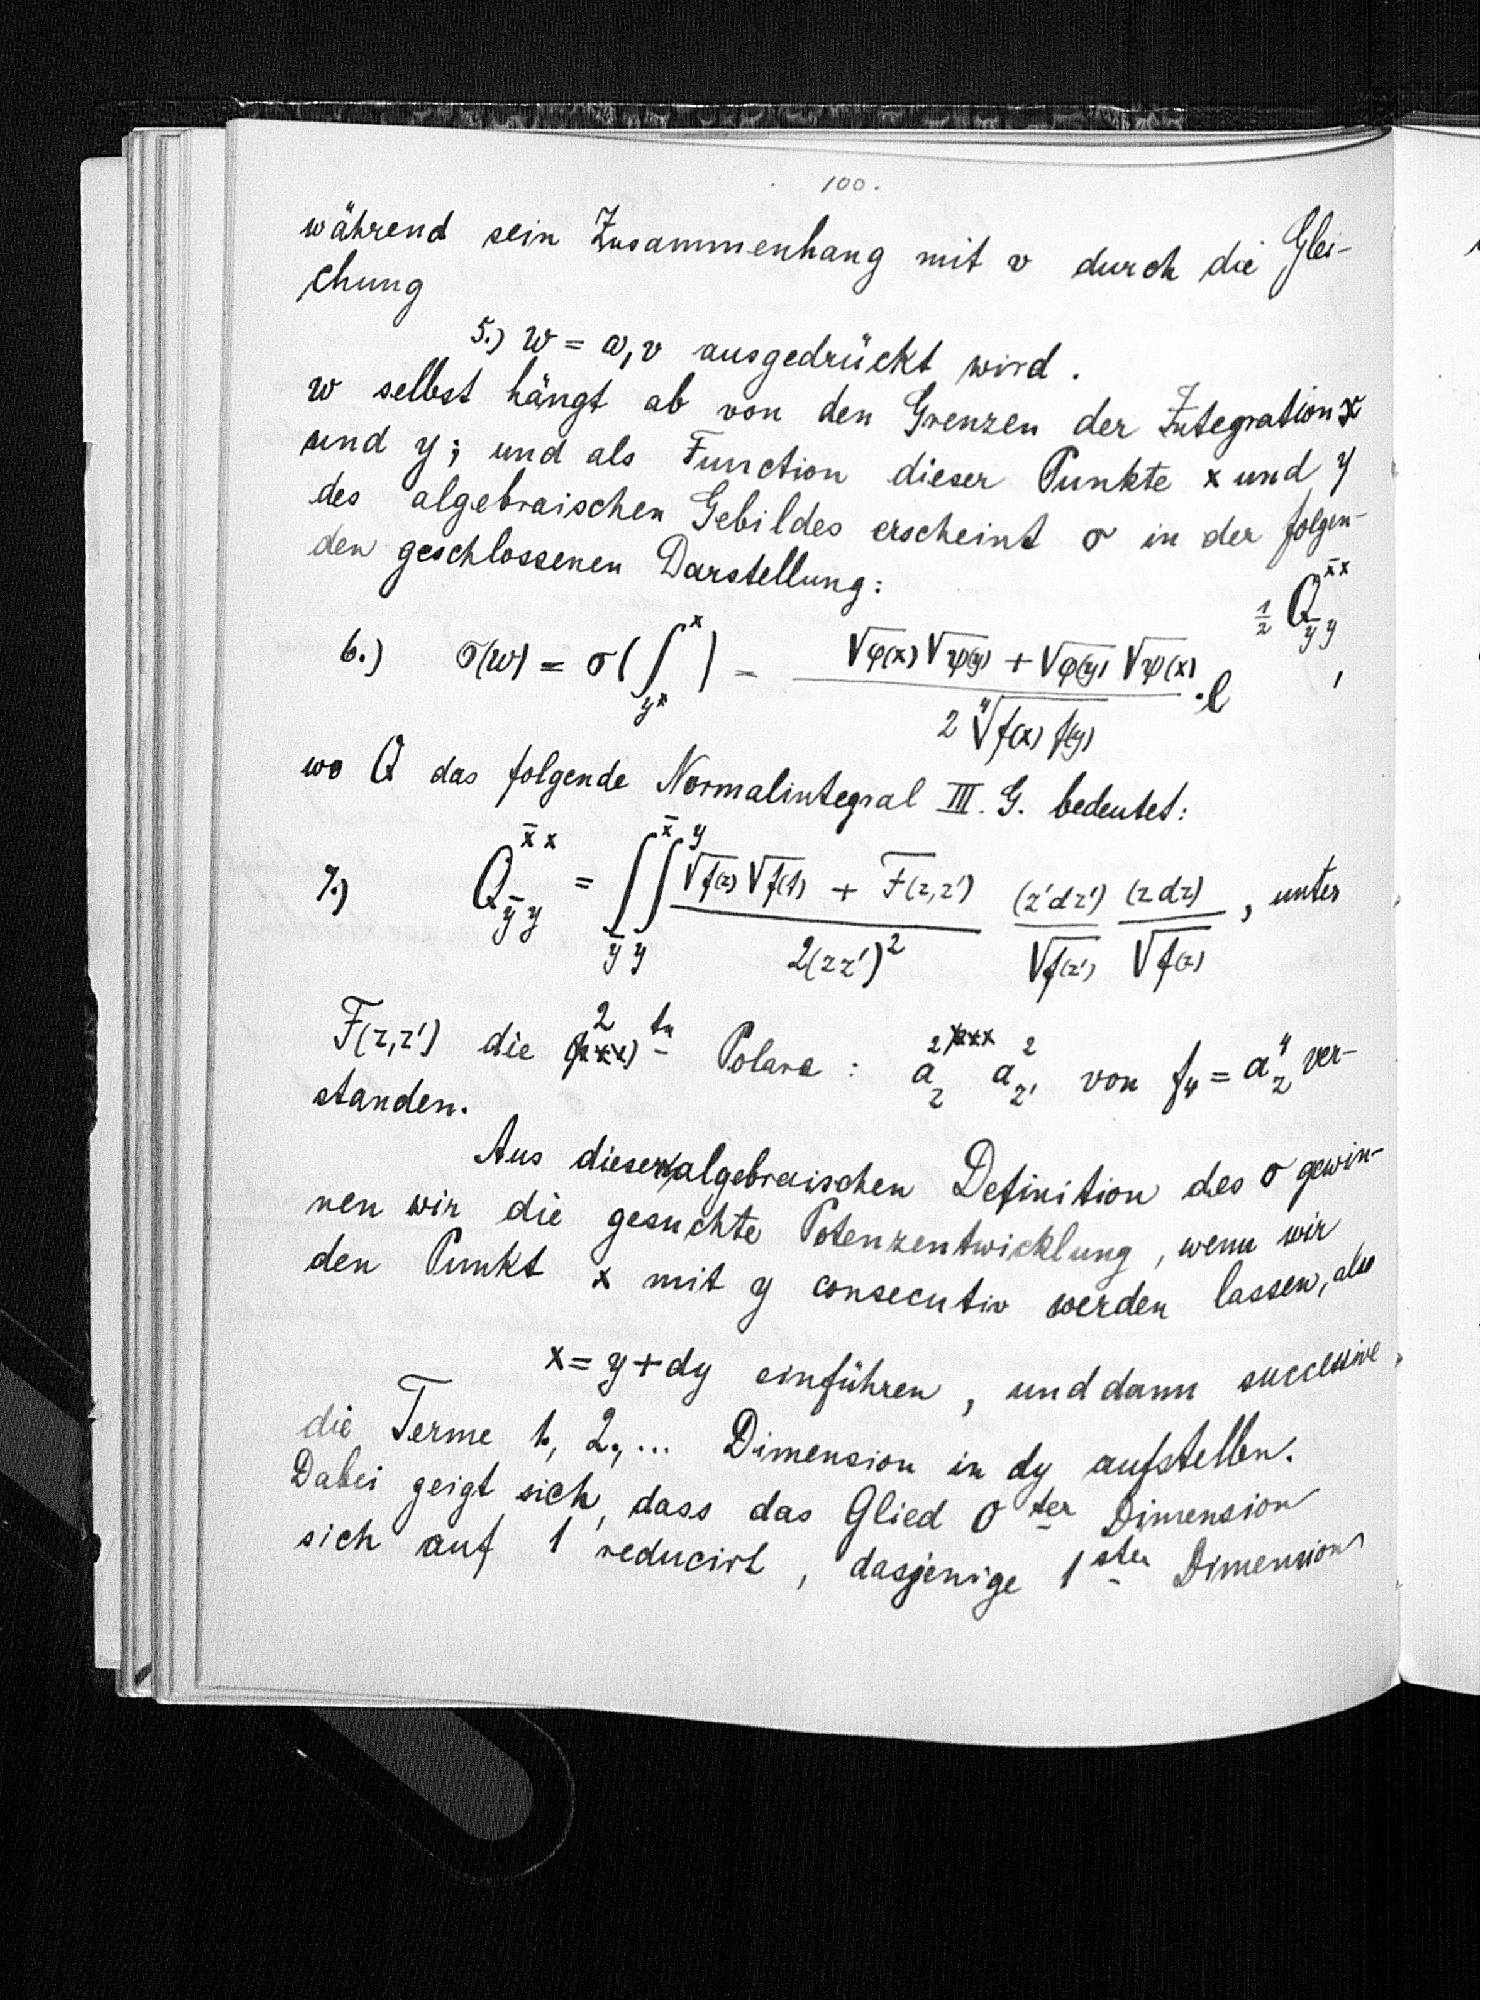 100.
während sein Zusammenhang mit v durch die Glei-
chung
5.) w = ω, v ausgedrückt wird.
w selbst hängt ab von den Grenzen der Integration x
und y; und als Function dieser Punkte x und y
des algebraischen Gebildes erscheint σ in der folgen-
den geschlossenen Darstellung:
6.) σ(w) = σ(∫_y^x) = (√φ(x) √ψ(y) + √φ(y) √ψ(x)) / (2 ∜f(x) f(y)) · e^{½ Q_{ȳ y}^{x̄ x}},
wo Q das folgende Normalintegral III. G. bedeutet:
7.) Q_{ȳ y}^{x̄ x} = ∫_ȳ^x̄ ∫_y^y (√f(z) √f(z') + F(z,z')) / 2(zz')² (z'dz')/√f(z') (zdz)/√f(z), unter
F(z,z') die 2te Polare: a_z² a_z'² von f₄ = a_z⁴ ver-
standen.
Aus dieser algebraischen Definition des σ gewin-
nen wir die gesuchte Potenzentwicklung, wenn wir
den Punkt x mit y consecutiv werden lassen, also
x = y + dy einführen, und dann successive
die Terme 1., 2., ... Dimension in dy aufstellen.
Dabei geigt sich, dass das Glied 0ter Dimension
sich auf 1 reducirt, dasjenige 1ster Dimension